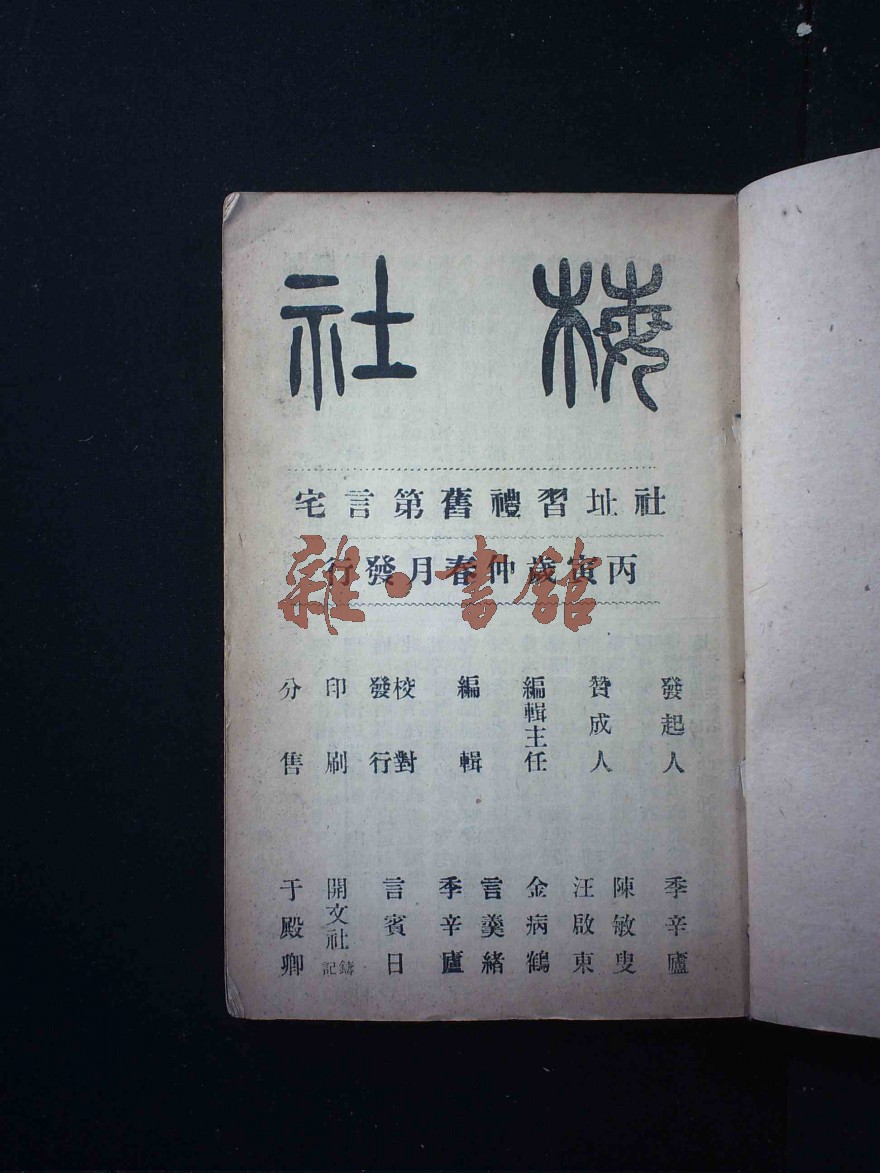 梅社
社址習禮舊第言宅
丙寅歲仲春月發行
雜·書館
發起人 季辛廬
贊成人 陳敏叟 汪啟東
編輯主任 金病鶴
編輯 言羹緒 季辛廬
校對發行 言賓日
印刷 開文社鑄記
分售 于殿卿